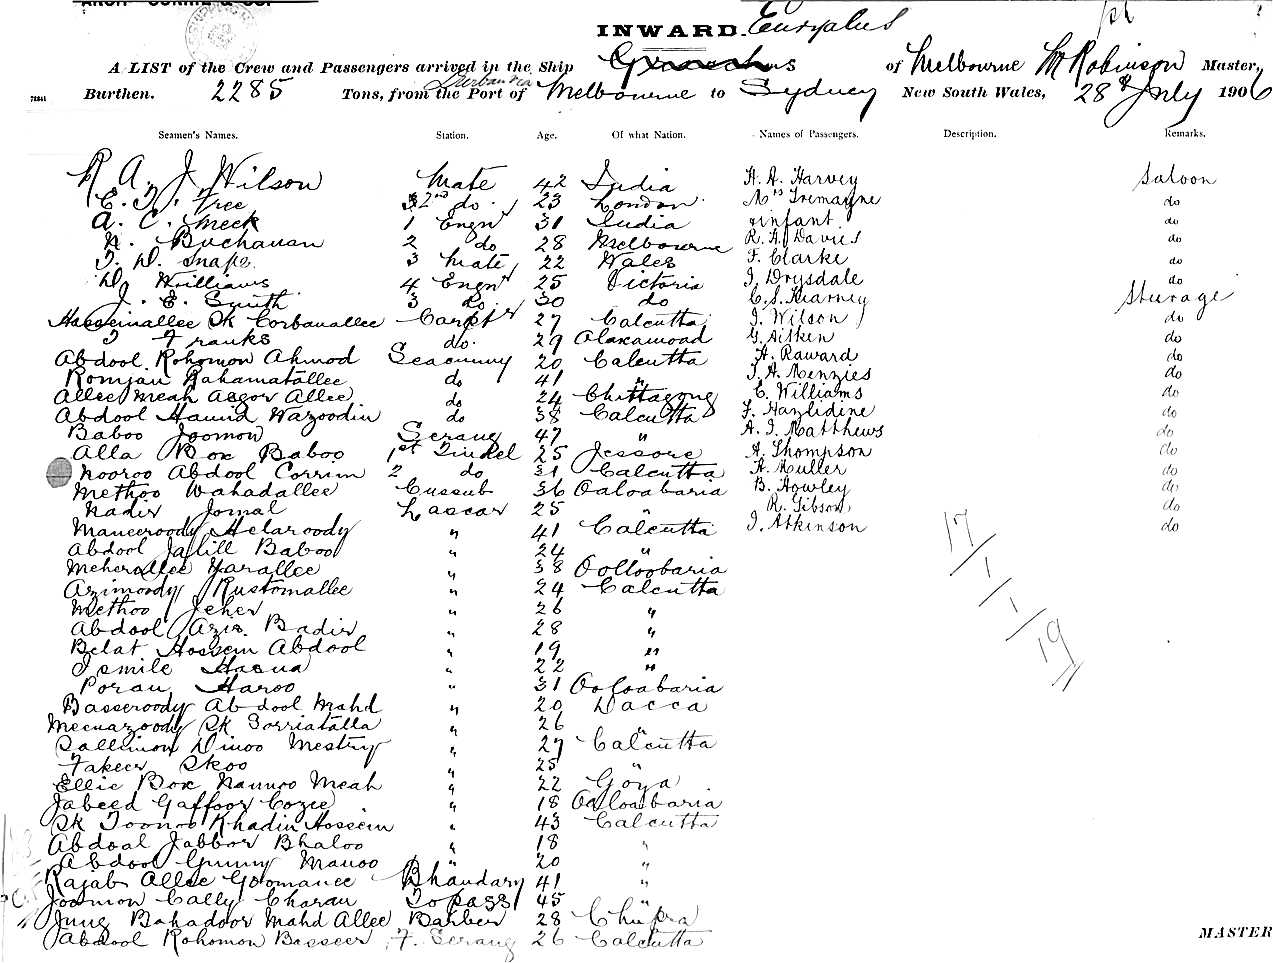 INWARD. Euryalus
A LIST of the Crew and Passengers arrived in the Ship of Melbourne Robinson Master,
Burthen. 2285 Tons, from the Port of Melbourne to Sydney New South Wales, 28th July 1906
Seamen's Names. Station. Age. Of what Nation. Names of Passengers. Description. Remarks.
R A. J Wilson Mate 42 India H. A. Harvey Saloon
C. T. Tree 2nd do. 23 London Mrs Tremayne do
A. C. Meek 1 Engnr 31 India infant do
N. Buchanan 2 do 28 Melbourne R. H. Davies do
D. Snape 3 Mate 22 Wales F. Clarke do
W. Williams 4 Engnr 25 Victoria J. Drysdale do
J. E. Smith 3 do. 30 do C. S. Kearney Steerage
Hasseinallee Sk Corbanallee Carptr 27 Calcutta J. Wilson do
Franks do. 29 G. Aitken do
Abdool Rohomon Ahmod Seacunny 20 Calcutta H. Raward do
Romjan Rahamatallee do 41 " J. H. Menzies do
Allee Meah Asgor Allee do 24 Chittagong E. Williams do
Abdool Hamid Wazoodin do 38 Calcutta F. Hazlidine do
Baboo Joomon Serang 47 " A. J. Matthews do
Alla Box Baboo 1st Tindel 25 Jessore A. Thompson do
Nooroo Abdool Corrim 2 do 31 Calcutta A. Muller do
Methoo Wahadallee Cussub 36 Ooloobaria B. Howley do
Nadir Jomal Lascar 25 " R. Gibson do
Maneeroody Meharoody " 41 Calcutta J. Atkinson do
Abdool Jalill Baboo " 24 "
Meherallee Yarallee " 38 Oolloobaria
Azimoody Rustomallee " 24 Calcutta
Methoo Jeher " 26 "
Abdool Azis Badir " 28 "
Belat Hossein Abdool " 19 "
Ismile Hasua " 22 "
Poran Haroo " 31 Ooloobaria
Basseroody Abdool Mahd " 20 Dacca
Meenazoody Sk Sorriatalla " 26 "
Sallimon Dinoo Mestry " 27 Calcutta
Fakeer Skoo " 25 "
Ellie Box Nannoo Meah " 22 Goya
Jabeed Gaffoor Cozie " 18 Ooloobaria
Sk Toonoo Khadim Hossein " 43 Calcutta
Abdool Jabbor Bhaloo " 18 "
Abdool Gunny Manoo " 20 "
Rajab Allee Goomanee Bhandary 41 "
Joomon Cally Charan Topass 45 "
Jung Bahadoor Mahd Allee Barber 28 Chupra
Abdool Rohomon Basseer F. Serang 26 Calcutta
17 / 1 / 1 / 19
MASTER